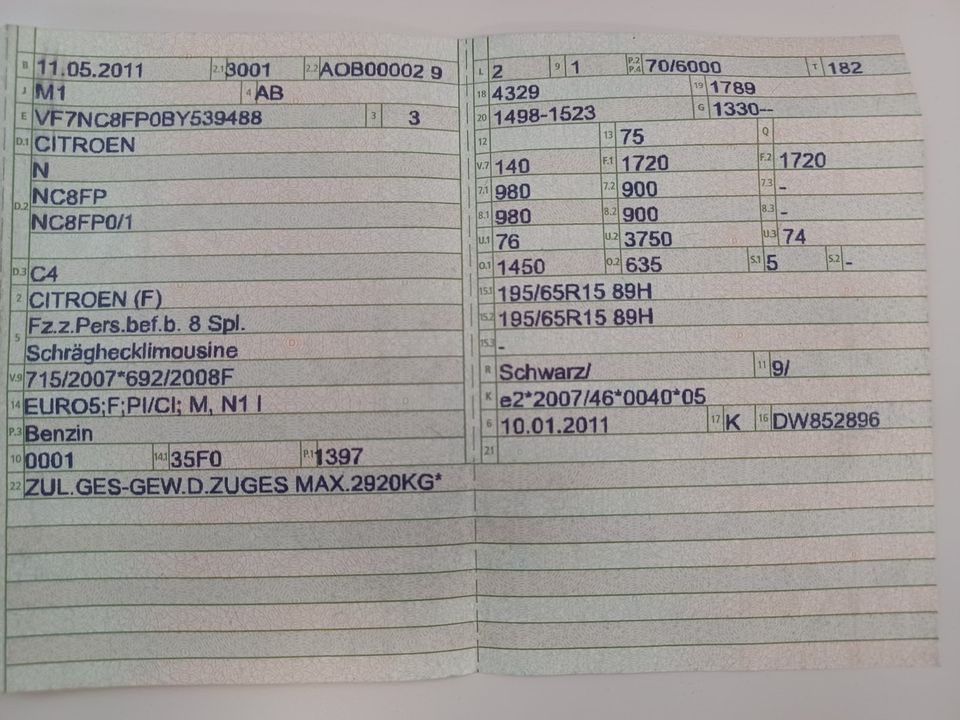 B 11.05.2011 2.1 3001 2.2 AOB00002 9
J M1 4 AB
E VF7NC8FP0BY539488 3 3
D.1 CITROEN
D.2 N
NC8FP
NC8FP0/1
D.3 C4
2 CITROEN (F)
5 Fz.z.Pers.bef.b. 8 Spl.
Schräghecklimousine
V.9 715/2007*692/2008F
14 EURO5;F;PI/CI; M, N1 I
P.3 Benzin
10 0001 14.1 35F0 P.1 1397
22 ZUL.GES-GEW.D.ZUGES MAX.2920KG*
L 2 9 1 P.2 P.4 70/6000 T 182
18 4329 19 1789
20 1498-1523 G 1330--
12 13 75 Q
V.7 140 F.1 1720 F.2 1720
7.1 980 7.2 900 7.3 -
8.1 980 8.2 900 8.3 -
U.1 76 U.2 3750 U.3 74
O.1 1450 O.2 635 S.1 5 S.2 -
15.1 195/65R15 89H
15.2 195/65R15 89H
15.3 -
R Schwarz/ 11 9/
K e2*2007/46*0040*05
6 10.01.2011 17 K 16 DW852896
21